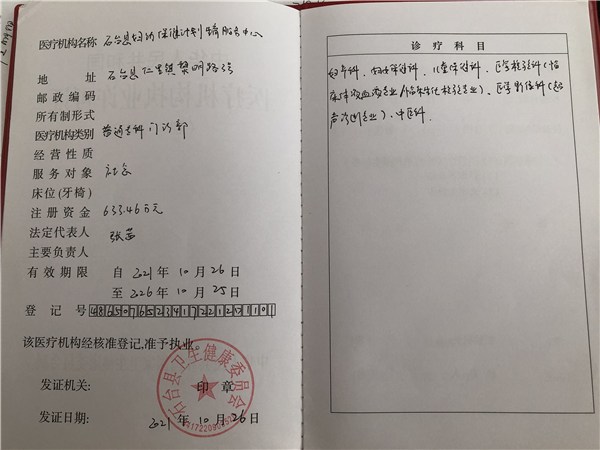 医疗机构名称 石台县妇幼保健计划生育服务中心
地 址 石台县仁里镇
邮政编码
所有制形式
医疗机构类别 普通专科门诊部
经营性质
服务对象 社会
床位(牙椅)
注册资金 633.46万元
法定代表人
主要负责人
有效期限 自 2021 年 10 月 26 日
至 2026 年 10 月 25 日
登记号
该医疗机构经核准登记,准予执业。
发证机关: 印 章
石台县卫生健康委员会
发证日期: 2021 年 10 月 26 日
诊 疗 科 目
妇产科、妇女保健科、儿童保健科、医学检验科(临
床体液血液专业/临床生化检验专业)、医学影像科(超
声诊断专业)、中医科